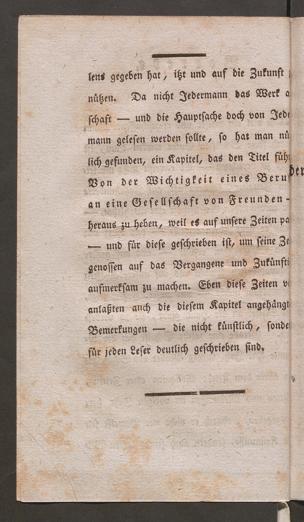 lens gegeben hat, itzt und auf die Zukunft
nützen. Da nicht Jedermann das Werk
schaft — und die Hauptsache doch von Jede
mann gelesen werden sollte, so hat man nü
lich gefunden, ein Kapitel, das den Titel füh
Von der Wichtigkeit eines Beru
an eine Gesellschaft von Freunden —
heraus zu heben, weil es auf unsere Zeiten pa
— und für diese geschrieben ist, um seine Ze
genossen auf das Vergangene und Zukünfti
aufmerksam zu machen. Eben diese Zeiten v
anlaßten auch die diesem Kapitel angehängt
Bemerkungen — die nicht künstlich, sonde
für jeden Leser deutlich geschrieben sind.